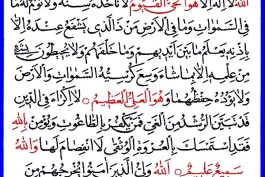 اَللّٰهُ لَا اِلٰهَ اِلَّا هُوَ الْحَيُّ الْقَيُّومُ لَا تَأْخُذُهُ سِنَةٌ وَلَا نَوْمٌ لَهُ مَا
فِي السَّمٰوَاتِ وَمَا فِي الْاَرْضِ مَنْ ذَا الَّذِي يَشْفَعُ عِنْدَهُ اِلَّا
بِاِذْنِهِ يَعْلَمُ مَا بَيْنَ اَيْدِيهِمْ وَمَا خَلْفَهُمْ وَلَا يُحِيطُونَ بِشَيْءٍ
مِنْ عِلْمِهِ اِلَّا بِمَا شَاءَ وَسِعَ كُرْسِيُّهُ السَّمٰوَاتِ وَالْاَرْضَ
وَلَا يَؤُدُهُ حِفْظُهُمَا وَهُوَ الْعَلِيُّ الْعَظِيمُ لَا اِكْرَاهَ فِي الدِّينِ
قَدْ تَبَيَّنَ الرُّشْدُ مِنَ الْغَيِّ فَمَنْ يَكْفُرْ بِالطَّاغُوتِ وَيُؤْمِنْ بِاللّٰهِ
فَقَدِ اسْتَمْسَكَ بِالْعُرْوَةِ الْوُثْقٰى لَا انْفِصَامَ لَهَا وَاللّٰهُ
سَمِيعٌ عَلِيمٌ اَللّٰهُ وَلِيُّ الَّذِينَ اٰمَنُوا يُخْرِجُهُمْ مِنَ